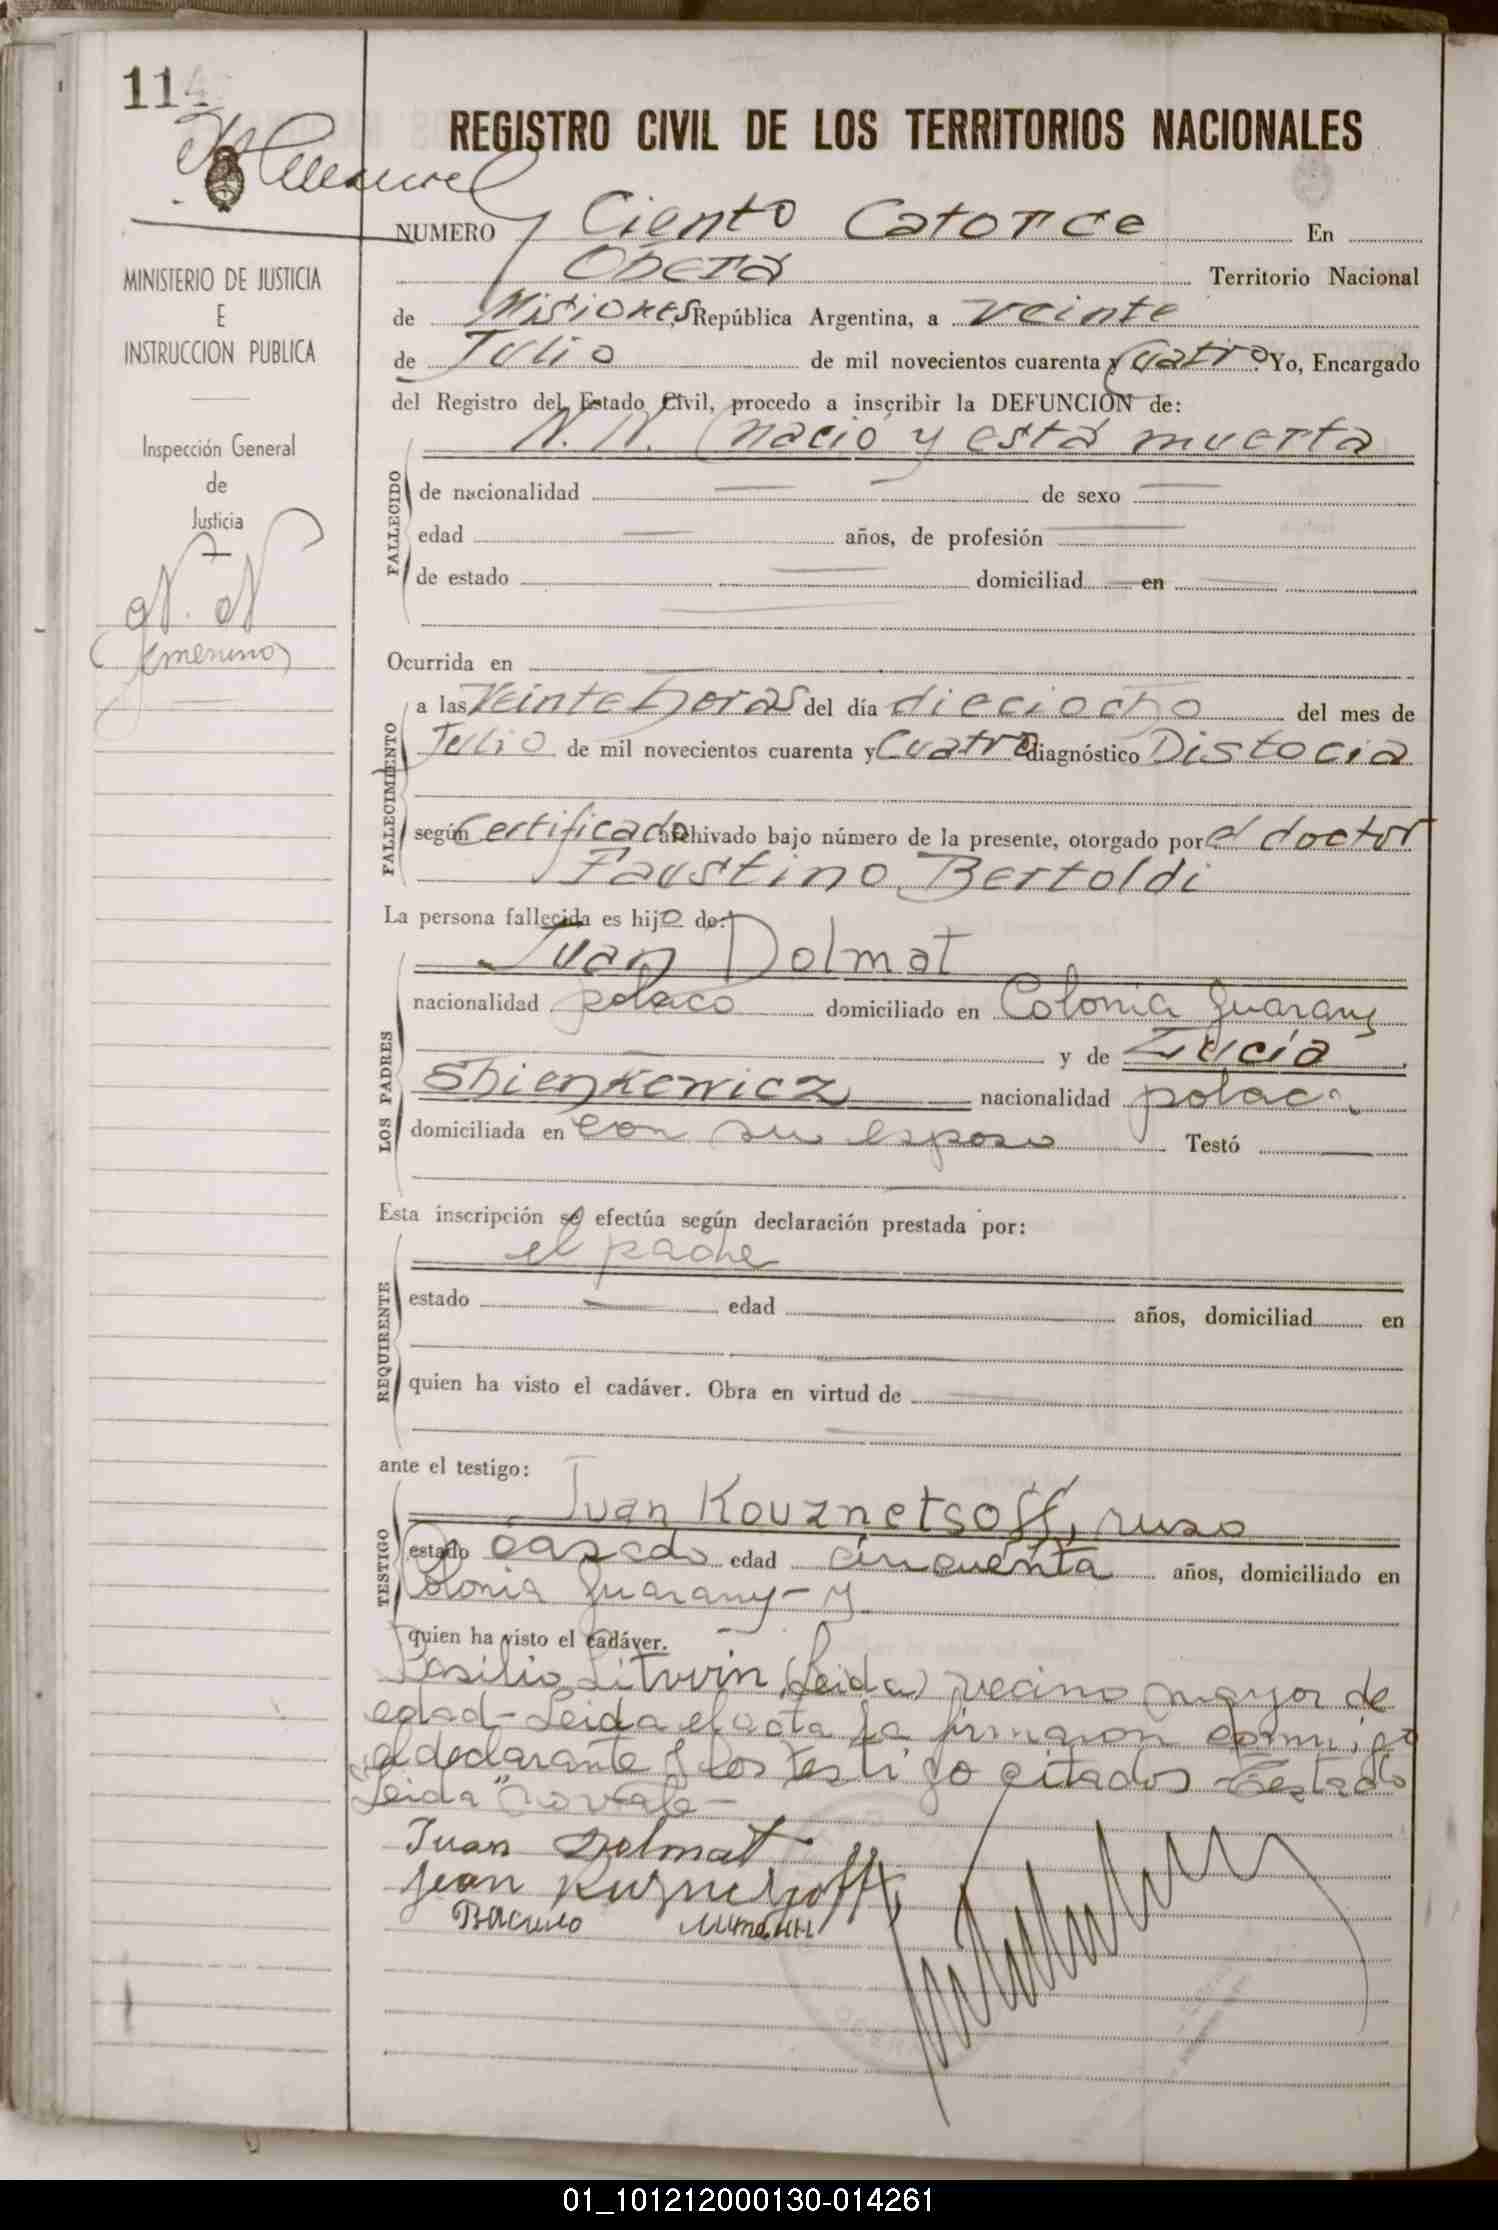 114
REGISTRO CIVIL DE LOS TERRITORIOS NACIONALES
MINISTERIO DE JUSTICIA
E
INSTRUCCION PUBLICA
Inspección General
de
Justicia
N. N
(femenino)
NUMERO Ciento Catorce En
Oberá Territorio Nacional
de Misiones, República Argentina, a veinte
de Julio de mil novecientos cuarenta y Cuatro. Yo, Encargado
del Registro del Estado Civil, procedo a inscribir la DEFUNCIÓN de:
N. N. (nació y está muerta
FALLECIDO
de nacionalidad de sexo
edad años, de profesión
de estado domiciliad en
Ocurrida en
FALLECIMIENTO
a las Veinte horas del día dieciocho del mes de
Julio de mil novecientos cuarenta y Cuatro diagnóstico Distocia
según Certificado archivado bajo número de la presente, otorgado por el doctor
Faustino Bertoldi
La persona fallecida es hijo de:
LOS PADRES
Juan Dolmat
nacionalidad polaco domiciliado en Colonia Guarany
y de Lucía
Shienkewicz nacionalidad polaca
domiciliada en con su esposo Testó
Esta inscripción se efectúa según declaración prestada por:
REQUIRENTE
el padre
estado edad años, domiciliad en
quien ha visto el cadáver. Obra en virtud de
ante el testigo:
TESTIGO
Juan Kouznetsoff, ruso
estado casado edad cincuenta años, domiciliado en
Colonia Guarany - y
quien ha visto el cadáver.
Basilio Litwin (Leida) vecino mayor de
edad - Leida el acta la firmaron conmigo
el declarante y los testigo citados Testado
"Leida" no vale -
Juan Dolmat
Jean Kuznetzoff
01_101212000130-014261